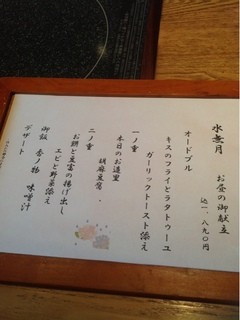 水無月
お昼の御献立
込一、八九〇円
オードブル
キスのフライとラタトゥーユ
ガーリックトースト添え
一ノ重
本日のお造里
胡麻豆腐
二ノ重
お餅と豆富の揚げ出し
エビと野菜添え
御飯　香ノ物　味噌汁
デザート